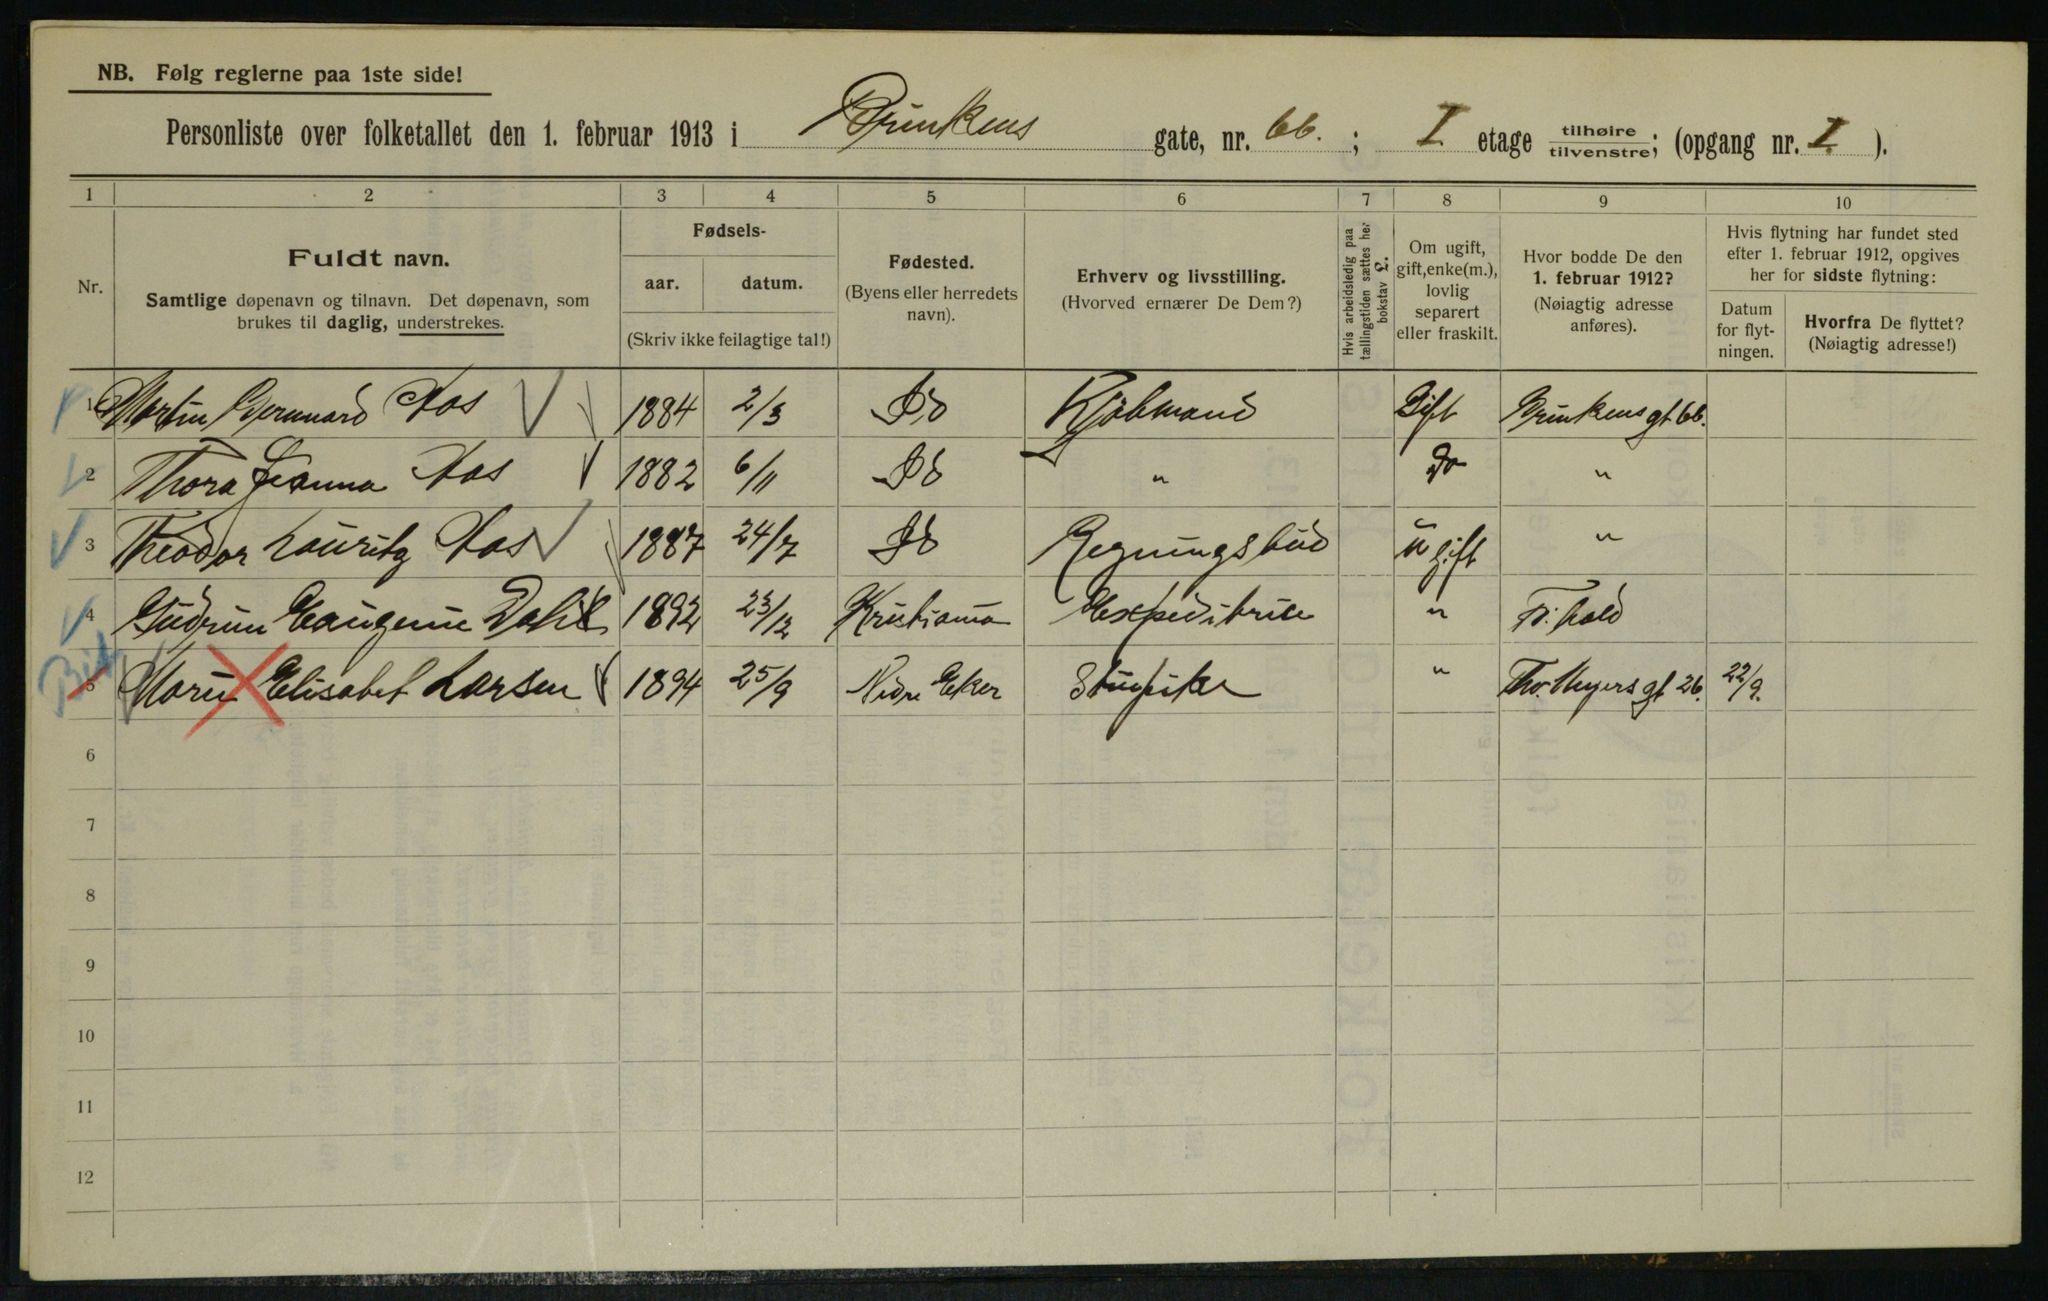 NB. Følg reglerne paa 1ste side!
Personliste over folketallet den 1. februar 1913 i Brinkens gate, nr. 66. ; I etage tilhøire tilvenstre; (opgang nr. I ).
1 2 3 4 5 6 7 8 9 10
Nr.
Fuldt navn.
Samtlige døpenavn og tilnavn. Det døpenavn, som
brukes til daglig, understrekes.
Fødsels-
aar. datum.
(Skriv ikke feilagtige tal!)
Fødested.
(Byens eller herredets
navn).
Erhverv og livsstilling.
(Hvorved ernærer De Dem?)
Hvis arbeidsledig paa
tællingstiden sættes her
bokstav £.
Om ugift,
gift, enke(m.),
lovlig
separert
eller fraskilt.
Hvor bodde De den
1. februar 1912?
(Nøiagtig adresse
anføres).
Hvis flytning har fundet sted
efter 1. februar 1912, opgives
her for sidste flytning:
Datum
for flyt-
ningen.
Hvorfra De flyttet?
(Nøiagtig adresse!)
1 Martin Bernnard Aas 1884 2/3 Kjøbmand Gift Brinkens gt 66.
2 Thora Jeanna Aas 1882 6/11 " Do "
3 Theodor Lauritz Aas 1887 24/7 Regningsbud Ugift "
4 Gudrun Eaugenie Dahl 1892 23/12 Kristiania Expeditrice " Fr.hald
5 Marie Elisabet Larsen 1894 25/9 Nedre Eker Stuepike " Thv. Meyers gt 26. 22/9.
6
7
8
9
10
11
12